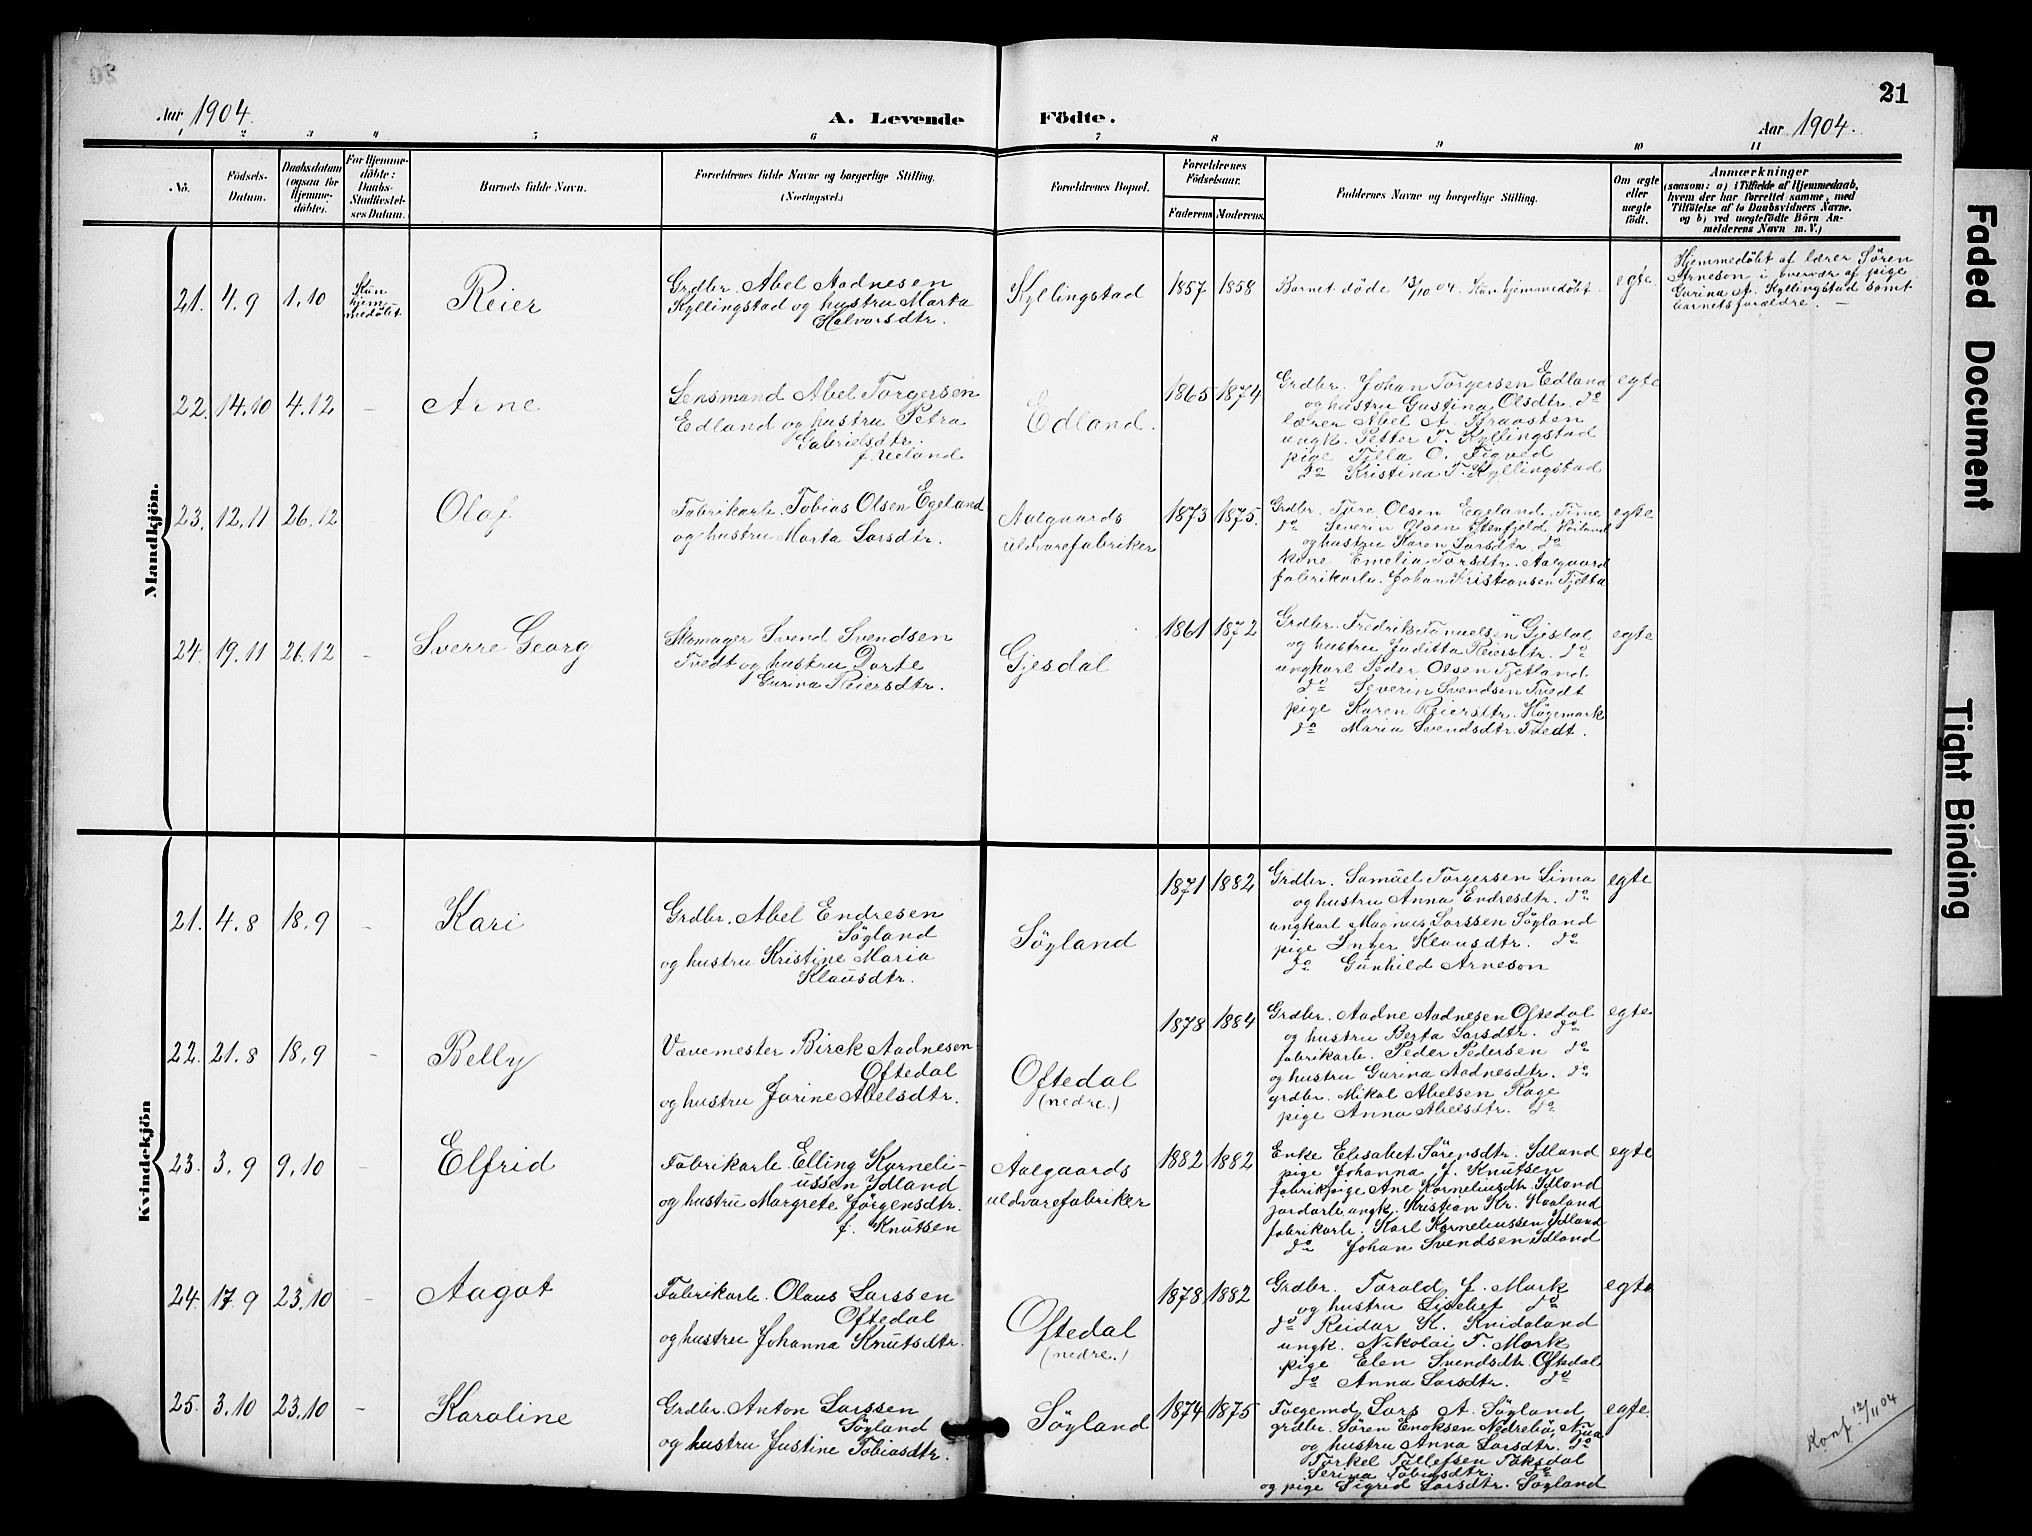 Aar 1904.
A. Levende Födte.
Aar 1904.
21
1 2 3 4 5 6 7 8 9 10 11
No.
Födsels-
Datum.
Daabsdatum
(ogsaa for
Hjemme-
döbte).
For Hjemme-
döbte:
Daabs-
Stadfæstel-
ses Datum.
Barnets fulde Navn.
Forældrenes fulde Navne og borgerlige Stilling.
(Næringsvei.)
Forældrenes Bopæl.
Forældrenes
Födselsaar.
Faderens
Moderens
Faddernes Navne og borgerlige Stilling.
Om ægte
eller
uægte
födt.
Anmærkninger
(saasom: a) i Tilfælde af Hjemmedaab,
hvem der har forrettet samme, med
Tilföielse af to Daabsvidners Navne.
og b) ved uægtefödte Börn An-
melderens Navn m. V.)
Mandkjön.
21. 4.9 1.10
Kun
hjem
medøbt
Reier
Grdbr. Abel Aadnesen
Kyllingstad og hustru Marta
Halvorsdtr.
Kyllingstad
1857 1858
Barnet døde 13/10 04. Kun hjemmedøbt.
egte
Hjemmedøbt af lærer Søren
Arneson i overvær af pige
Gurina A. Kyllingstad samt
barnets forældre. —
22. 14.10 4.12 –
Arne
Lensmand Abel Torgersen
Edland og hustru Petra
Gabrielsdtr.
f. Ueland
Edland.
1865 1874
Grdbr. Johan Torgersen Edland
og hustru Gustina Olsdtr. do
lærer Abel A. Braasten
ungk. Petter T. Kyllingstad
pige Tjlla O. Figved
do Kristina T. Kyllingstad
egte
23. 12.11 26.12
Olaf
Fabrikarb. Tobias Olsen Egeland
og hustru Marta Larsdtr.
Aalgaards
uldvarefabriker
1873 1875.
Grdbr. Ture Olsen Egeland. Time
do Severin Olsen Stenfjeld
og hustru Karen Larsdtr. do
kone Emelia Torsdtr. Aalgaard
fabrikarb. Johan Kristiansen Tjelta
egte
24. 19.11 26.12 –
Sverre Georg
Skomager Svend Svendsen
Tvedt og hustru Dorte
Gurina Reiersdtr.
Gjesdal
1861 1872
Grdbr. Fredrik Samuelsen Gjesdal
og hustru Juditta Reiersdtr. do
ungkarl Peder Olsen Tjetland.
do Severin Svendsen Tvedt
pige Karen Reiersdtr. Høgemark
do Maria Svendsdtr. Tvedt.
egte
Kvindekjön
21. 4.8 18.9 –
Kari
Grdbr. Abel Endresen
Søyland
og hustru Kristine Maria
Klausdtr.
Søyland
1871 1882
Grdbr. Samuel Torgersen Lima
og hustru Anna Endresdtr. do
ungkarl Magnus Larssen Søyland
pige Inger Klausdtr. do
do Gunhild Arneson
egte
22. 21.8 18.9 –
Belly
Vævemester Birck Aadnesen
Oftedal
og hustru Jorine Abelsdtr.
Oftedal
(nedre.)
1878 1884
Grdbr. Aadne Aadnesen Oftedal
og hustru Berta Larsdtr. do
fabrikarb. Peder Pedersen do
og hustru Gurina Aadnesdtr. do
grdbr. Mikal Abelsen Rage
pige Anna Abelsdtr. do
egte
23. 3.9 9.10 –
Elfrid
Fabrikarb. Elling Korneli-
ussen Idland
og hustru Margrete Jørgensdtr.
f. Knutsen
Aalgaards
uldvarefabriker
1882 1882
Enke Elisabet Sørensdtr. Idland
pige Johanna J. Knutsen
fabrikpige Ane Korneliusdtr. Idland
jordarb. ungk. Kristian Kr. Haaland
fabrikarb. Karl Korneliussen Idland
do Johan Svendsen Idland
egte
24. 17.9 23.10 –
Aagot
Fabrikarb. Olaus Larssen
Oftedal
og hustru Johanna Knutsdtr.
Oftedal
(nedre.)
1878 1882
Grdbr. Torald J. Mork
og hustru Lisebet do
do Reidar K. Kvidaland
ungk. Nikolai T. Mork
pige Elen Svendsdtr. Oftedal
do Anna Larsdtr. do
egte
25. 3.10 23.10 –
Karoline
Grdbr. Anton Larssen
Søyland
og hustru Justine Tobiasdtr.
Søyland
1874 1875
Følgemd Lars A. Søyland
grdbr. Søren Enoksen Nedrebø, Njaa
og hustru Anna Larsdtr. do
Torkel Tollefsen Taksdal
Serina Tobiasdtr. do
og pige Sigred Larsdtr. Søyland
egte
Konf. 12/11 04
Faded Document
Tight Binding